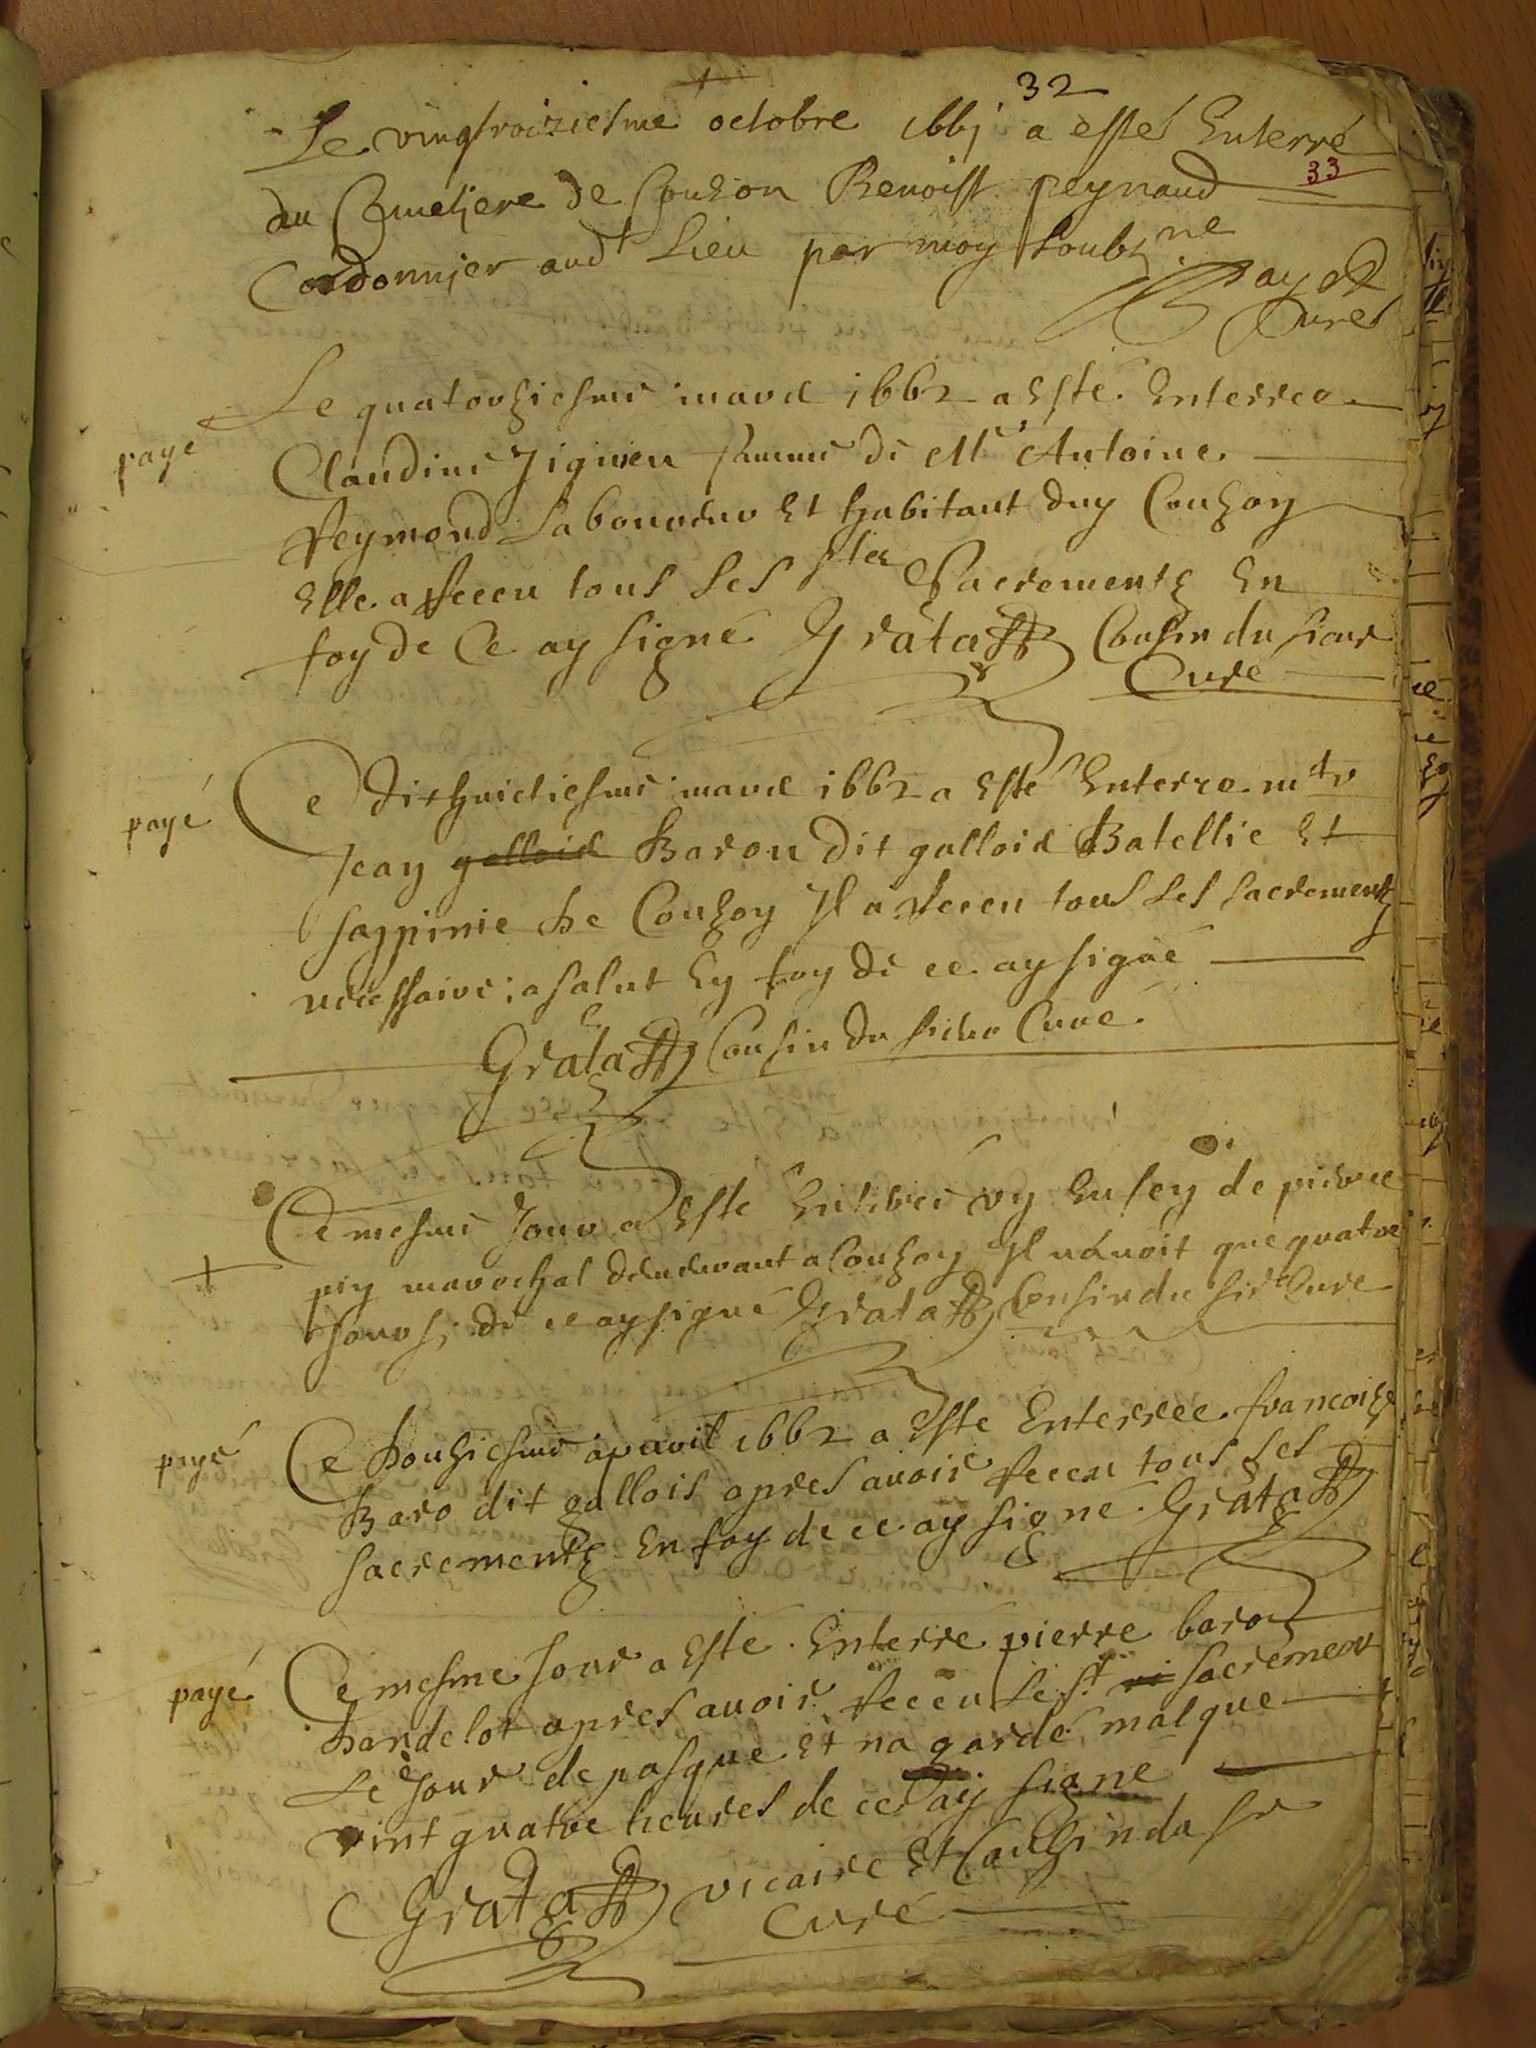 32
Le vingtroiziesme octobre 1661 a estes Enterré
33
au Cimetiere de Couzon Benoist peynaud
Cordonnier aud.t Lieu par moy soubz.ne
Bayet
Curé
Le quatorziesme mars 1662 a Esté Enterree
payé
Claudine famme de M.e Antoine
Reymond Laboureur Et habitant duy Couzoy
Elle a Receu tous Les s.tes Sacrementz En
foy de Ce ay signé Grata Cousin du sieur
Curé
Ce dixhuictiesme mars 1662 a Esté Enterre m.tre
payé
Jean galloid Baron dit galloid Batellie Et
sappinie de Couzoy Il a Receu tous Les sacrementz
necessaire a salut Ey foy de ce ay signé
Grata Cousin du sieur Curé
Ce mesme Jour a Esté Enterré vy Enfey de pierre
piy marechal demeurant a Couzoy Il n'avoit que quatre
Jours, de ce ay signé Grata Cousin du sie.r Curé
Ce douziesme apvril 1662 a Esté Enterree francoise
payé
Baro dit gallois apres avoir Receu tous Les
sacrementz En foy de ce ay signé Grata
Ce mesme Jour a Esté Enterré pierre baroy
payé
dardelot apres avoir Receu Le s.t sacrement
Le Jour de pasque Et na gardé mal que
vint quatre heures de ce ay signe
Grata vicaire Et Couzin du s.r
Curé